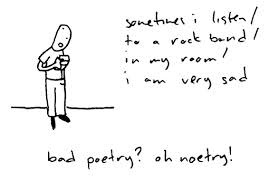 sometimes i listen/
to a rock band/
in my room/
i am very sad
bad poetry? oh noetry!